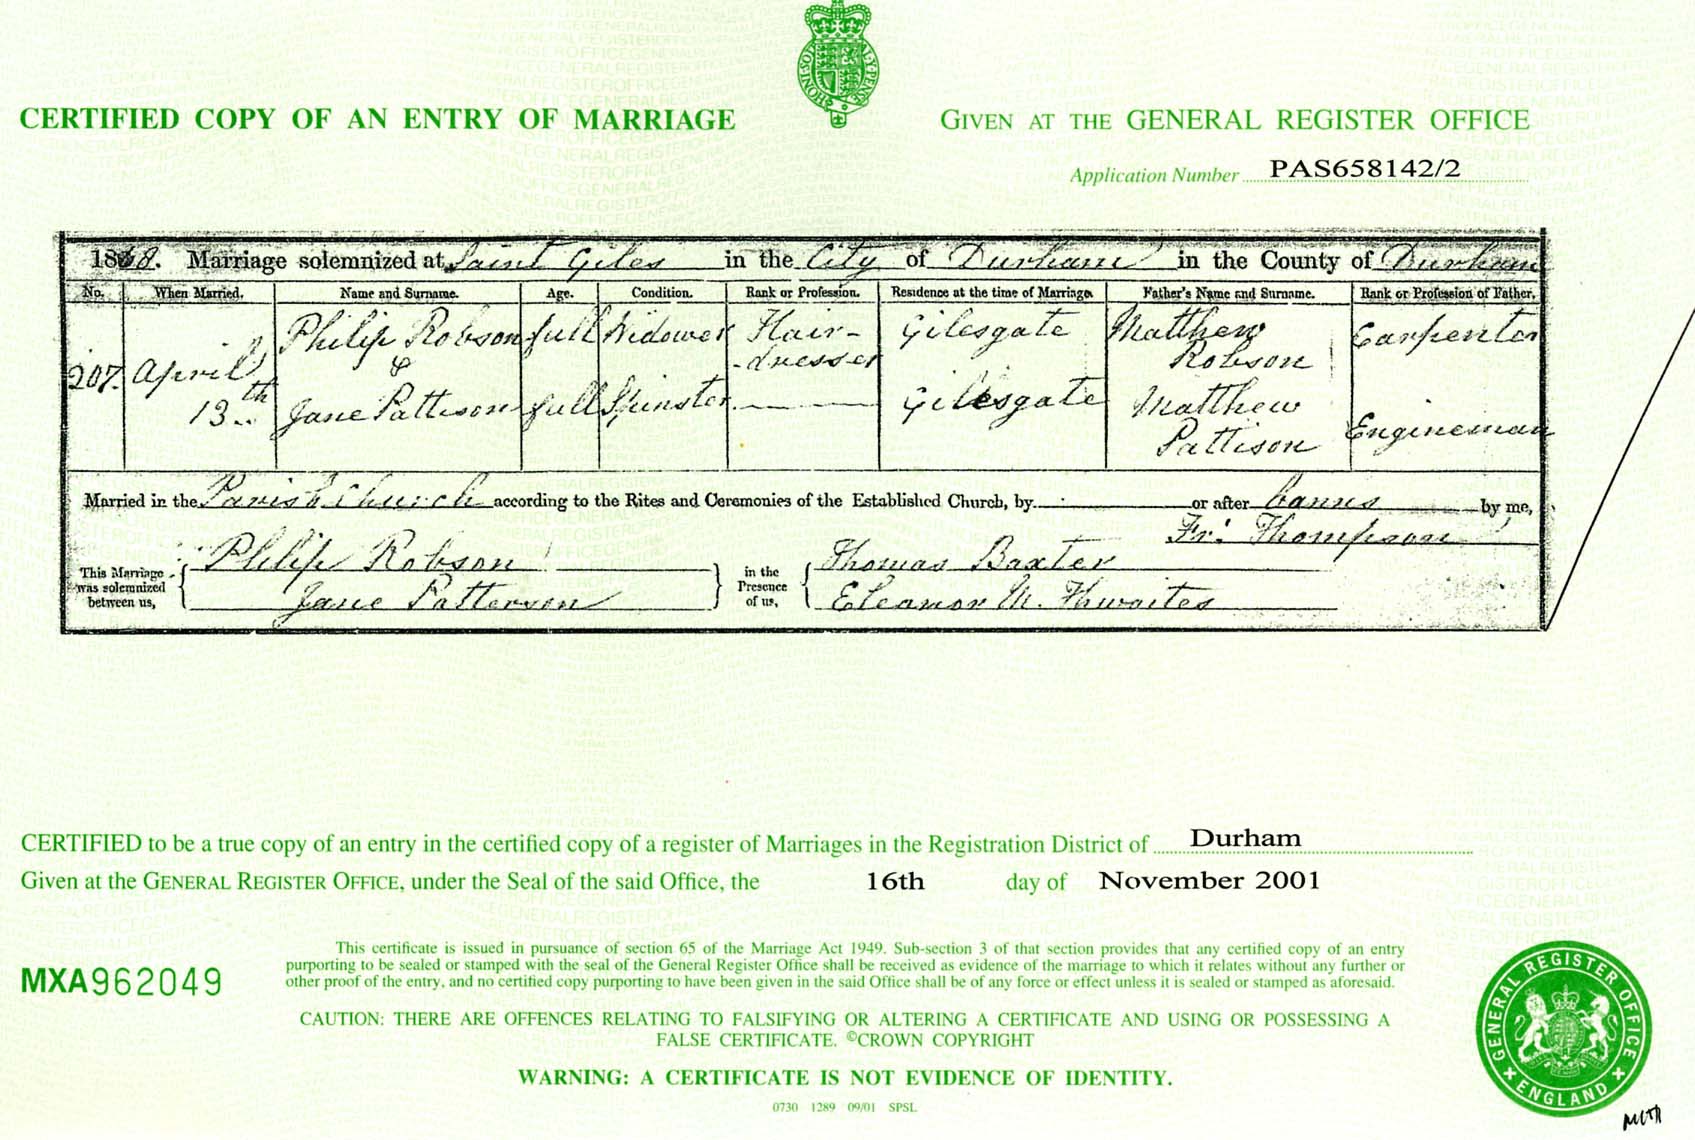 HONI SOIT QUI MAL Y PENSE
CERTIFIED COPY OF AN ENTRY OF MARRIAGE
GIVEN AT THE GENERAL REGISTER OFFICE
Application Number PAS658142/2
Marriage solemnized at Saint Giles in the City of Durham in the County of Durham
No. When Married. Name and Surname. Age. Condition. Rank or Profession. Residence at the time of Marriage. Father's Name and Surname. Rank or Profession of Father.
207. April 13th Philip Robson full Widower Hair-dresser Gilesgate Matthew Robson Carpenter
&
Jane Pattison full Spinster Gilesgate Matthew Pattison Engineman
Married in the Parish Church according to the Rites and Ceremonies of the Established Church, by or after banns by me,
Fr: Thompson
This Marriage was solemnized between us, Philip Robson in the Presence of us, Thomas Baxter
Jane Patterson Eleanor M. Thwaites
CERTIFIED to be a true copy of an entry in the certified copy of a register of Marriages in the Registration District of Durham
Given at the GENERAL REGISTER OFFICE, under the Seal of the said Office, the 16th day of November 2001
This certificate is issued in pursuance of section 65 of the Marriage Act 1949. Sub-section 3 of that section provides that any certified copy of an entry
purporting to be sealed or stamped with the seal of the General Register Office shall be received as evidence of the marriage to which it relates without any further or
other proof of the entry, and no certified copy purporting to have been given in the said Office shall be of any force or effect unless it is sealed or stamped as aforesaid.
MXA962049
CAUTION: THERE ARE OFFENCES RELATING TO FALSIFYING OR ALTERING A CERTIFICATE AND USING OR POSSESSING A
FALSE CERTIFICATE. ©CROWN COPYRIGHT
WARNING: A CERTIFICATE IS NOT EVIDENCE OF IDENTITY.
0730 1289 09/01 SPSL
GENERAL REGISTER OFFICE
ENGLAND